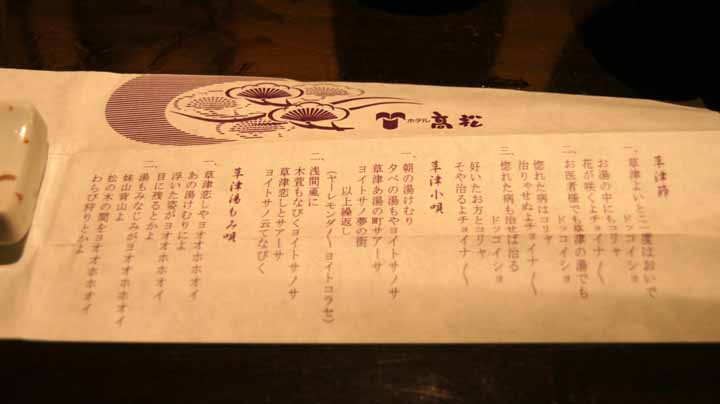 ホテル 高松
草津節
一、草津よいとこ一度はおいで
ドッコイショ
お湯の中にもコリャ
花が咲くよチョイナ〱
二、お医者様でも草津の湯でも
ドッコイショ
惚れた病はコリャ
治りゃせぬよチョイナ〱
三、惚れた病も治せば治る
ドッコイショ
好いたお方とコリャ
そや治るよチョイナ〱
草津小唄
一、朝の湯けむり
夕べの湯もやヨイトサノサ
草津お湯の町サアーサ
ヨイトサノ夢の街
以上繰返し
(ヤーレモンダ〱ヨイトコラセ)
二、浅間嵐に
木萱もなびくヨイトサノサ
草津恋しとサアーサ
ヨイトサノ云てなびく
草津湯もみ唄
一、草津恋しやヨオホホオイ
あの湯けむりによ
浮いた姿がヨオオホホオイ
目に残るとかよ
二、湯もみなじみがヨオオホホオイ
妹山背山よ
松の木の間をヨオオホホオイ
わらび狩りとかよ